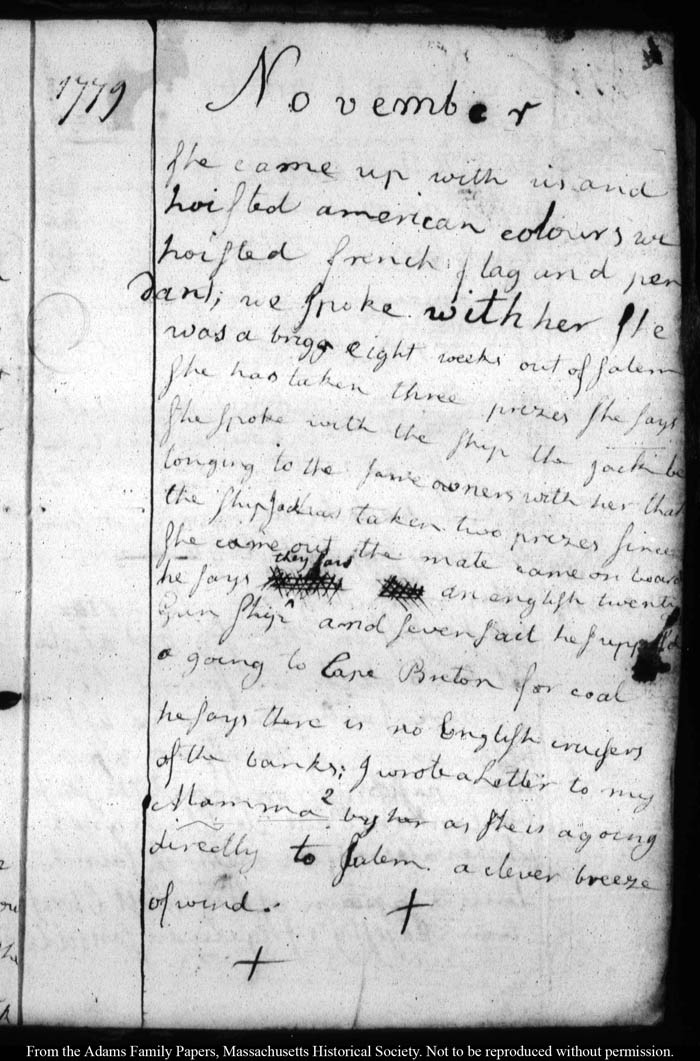 1779
November
she came up with us and
hoisted american colours we
hoisted french flag and pen
dant; we spoke with her she
was a brigg eight weeks out of salem
she has taken three prizes she says
she spoke with the ship the jack be
longing to the same owners with her that
the ship Jack has taken two prizes since
she came out the mate came on board
he says they saw an english twenty
Gun ship and seven sail he suppos'd
a going to Cape Breton for coal
he says there is no English cruisers
of the banks; I wrote a Letter to my
Mamma 2 by her as she is a going
directly to Salem a clever breeze
of wind.
From the Adams Family Papers, Massachusetts Historical Society. Not to be reproduced without permission.